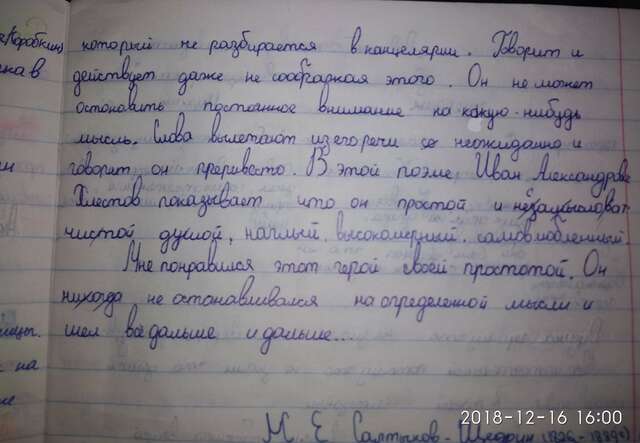 который не разбирается в канцелярии. Говорит и
действует даже не соображая этого. Он не может
остоновить постоянное внимание на какую-нибудь
мысль. Слова вылетают из его речи неожиданно и
говорит он прерывисто. В этой поэме Иван Александрович
Хлестов показывает что он простой и незамысловат
чистой душой, наглый, высокомерный, самовлюбленный.
Мне понравился этот герой своей простотой. Он
никогда не останавливался на определенной мысли и
шел всё дальше и дальше...
на
М. Е. Салтыков-Щедрин
2018-12-16 16:00